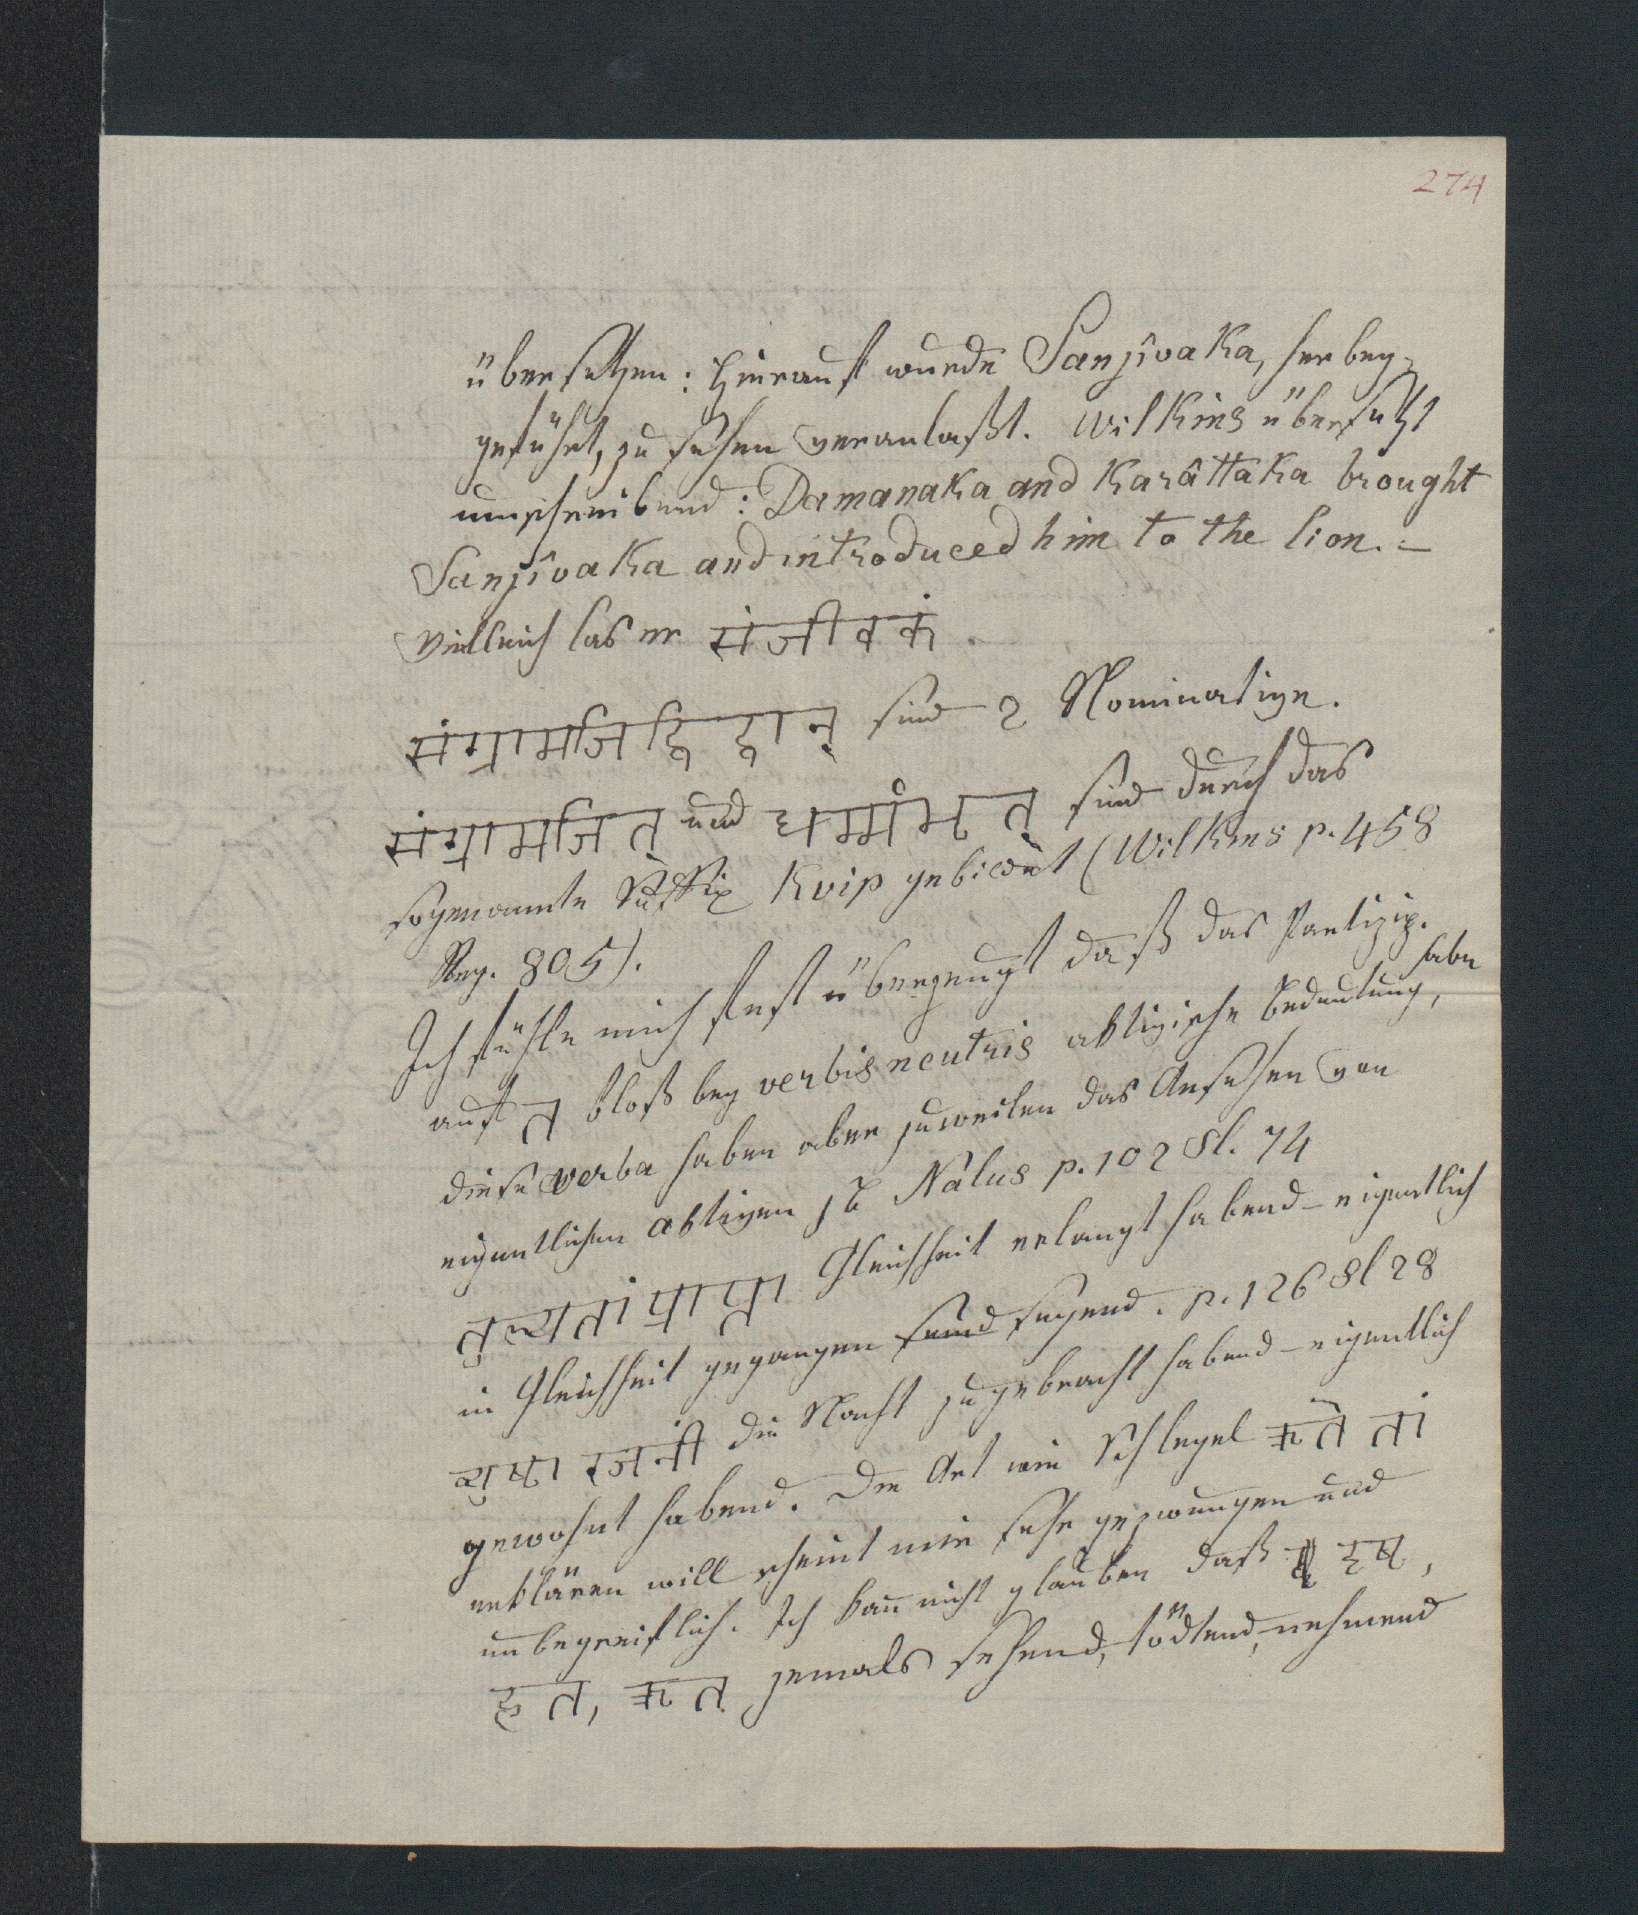 274
übersetzen: hierauf wurde Sanjîvaka, herbey-
geführt, zu sehen veranlaßt. Wilkins übersetzt
umschreibend: Damanaka and Karâttaka brought
Sanjîvaka and introduced him to the lion. –
Vielleich las er संजीवकं.
संग्रामजिद्विद्वान् sind 2 Nominative.
संग्रामजित् und धर्म्मभृत् sind durch das
sogenannte Suffix Kvip gebildet (Wilkins p. 458
Reg. 805).
Ich fühle mich fest überzeugt daß das Partizip.
auf त bloß bey verbis neutris aktivische Bedeutung habe,
diese verba haben aber zuweilen das Ansehen von
eigentlichen aktiven z b Nalus p. 102 Sl. 74
तुल्यतां प्राप्ता Gleichheit erlangt habend – eigentlich
in Gleichheit gegangen seyend. p. 126 Sl 28
व्युष्टा रजनीं die Nacht zugebracht habend – eigentlich
gewohnt habend. Die Art wie Schlegel हृते तां
erklären will scheint mir sehr gezwungen und
unbegreiflich. Ich kan nicht glauben daß दृष्ट,
हत, हृत jemals sehend, tödtend, nehmend